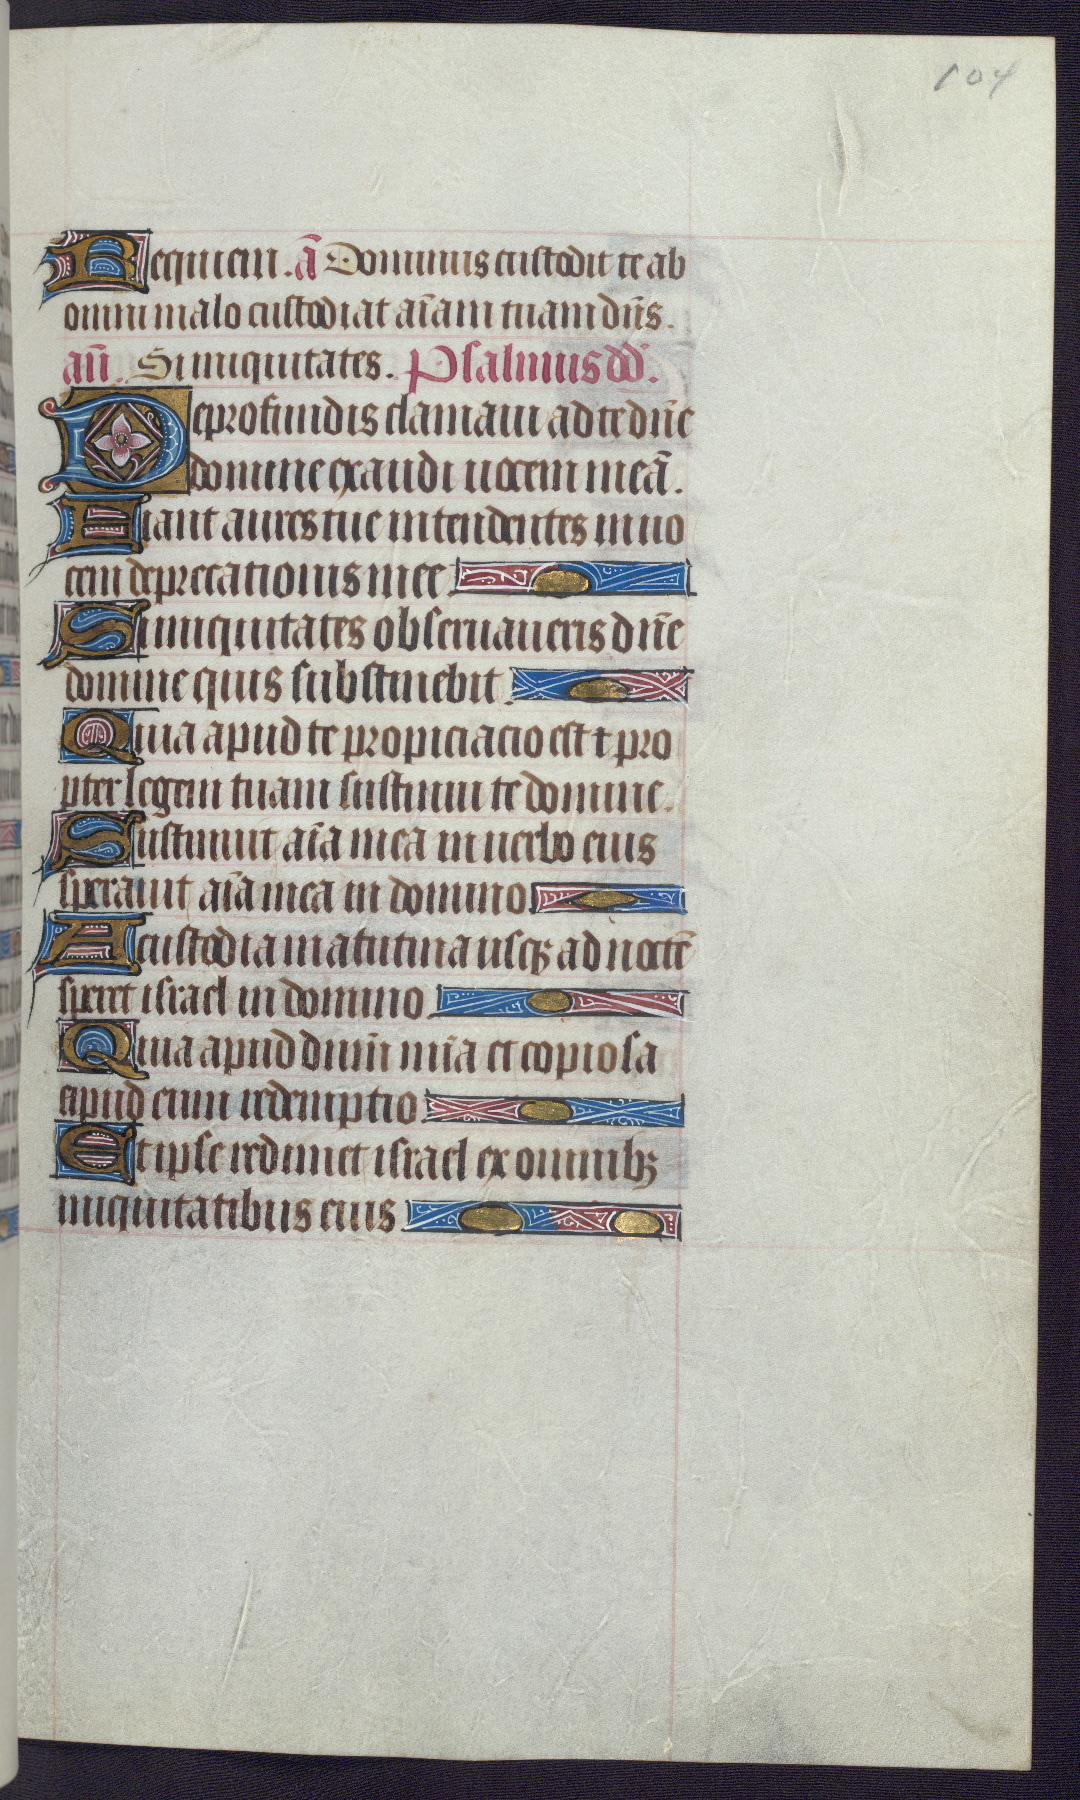 104
Requiem. ā Dominus custodit te ab
omni malo custodiat aīam tuam dn̄s.
an̄. Si iniquitates. Psalmus dd̄.
De profundis clamaui ad te dn̄e
domine exaudi uocem meā.
Fiant aures tue intendentes in uo
cem deprecationis mee.
Si iniquitates obseruaueris dn̄e
domine quis substinebit.
Quia apud te propiciacio est ⁊ pro
pter legem tuam sustinui te domine.
Sustinuit aīa mea in uerbo eius
sperauit aīa mea in domino
A custodia matutina usqꝫ ad noctē
speret israel in domino.
Quia apud dnm̄ mīa et copiosa
apud eum redemptio
Et ipse redimet israel ex omnibꝫ
iniquitatibus eius